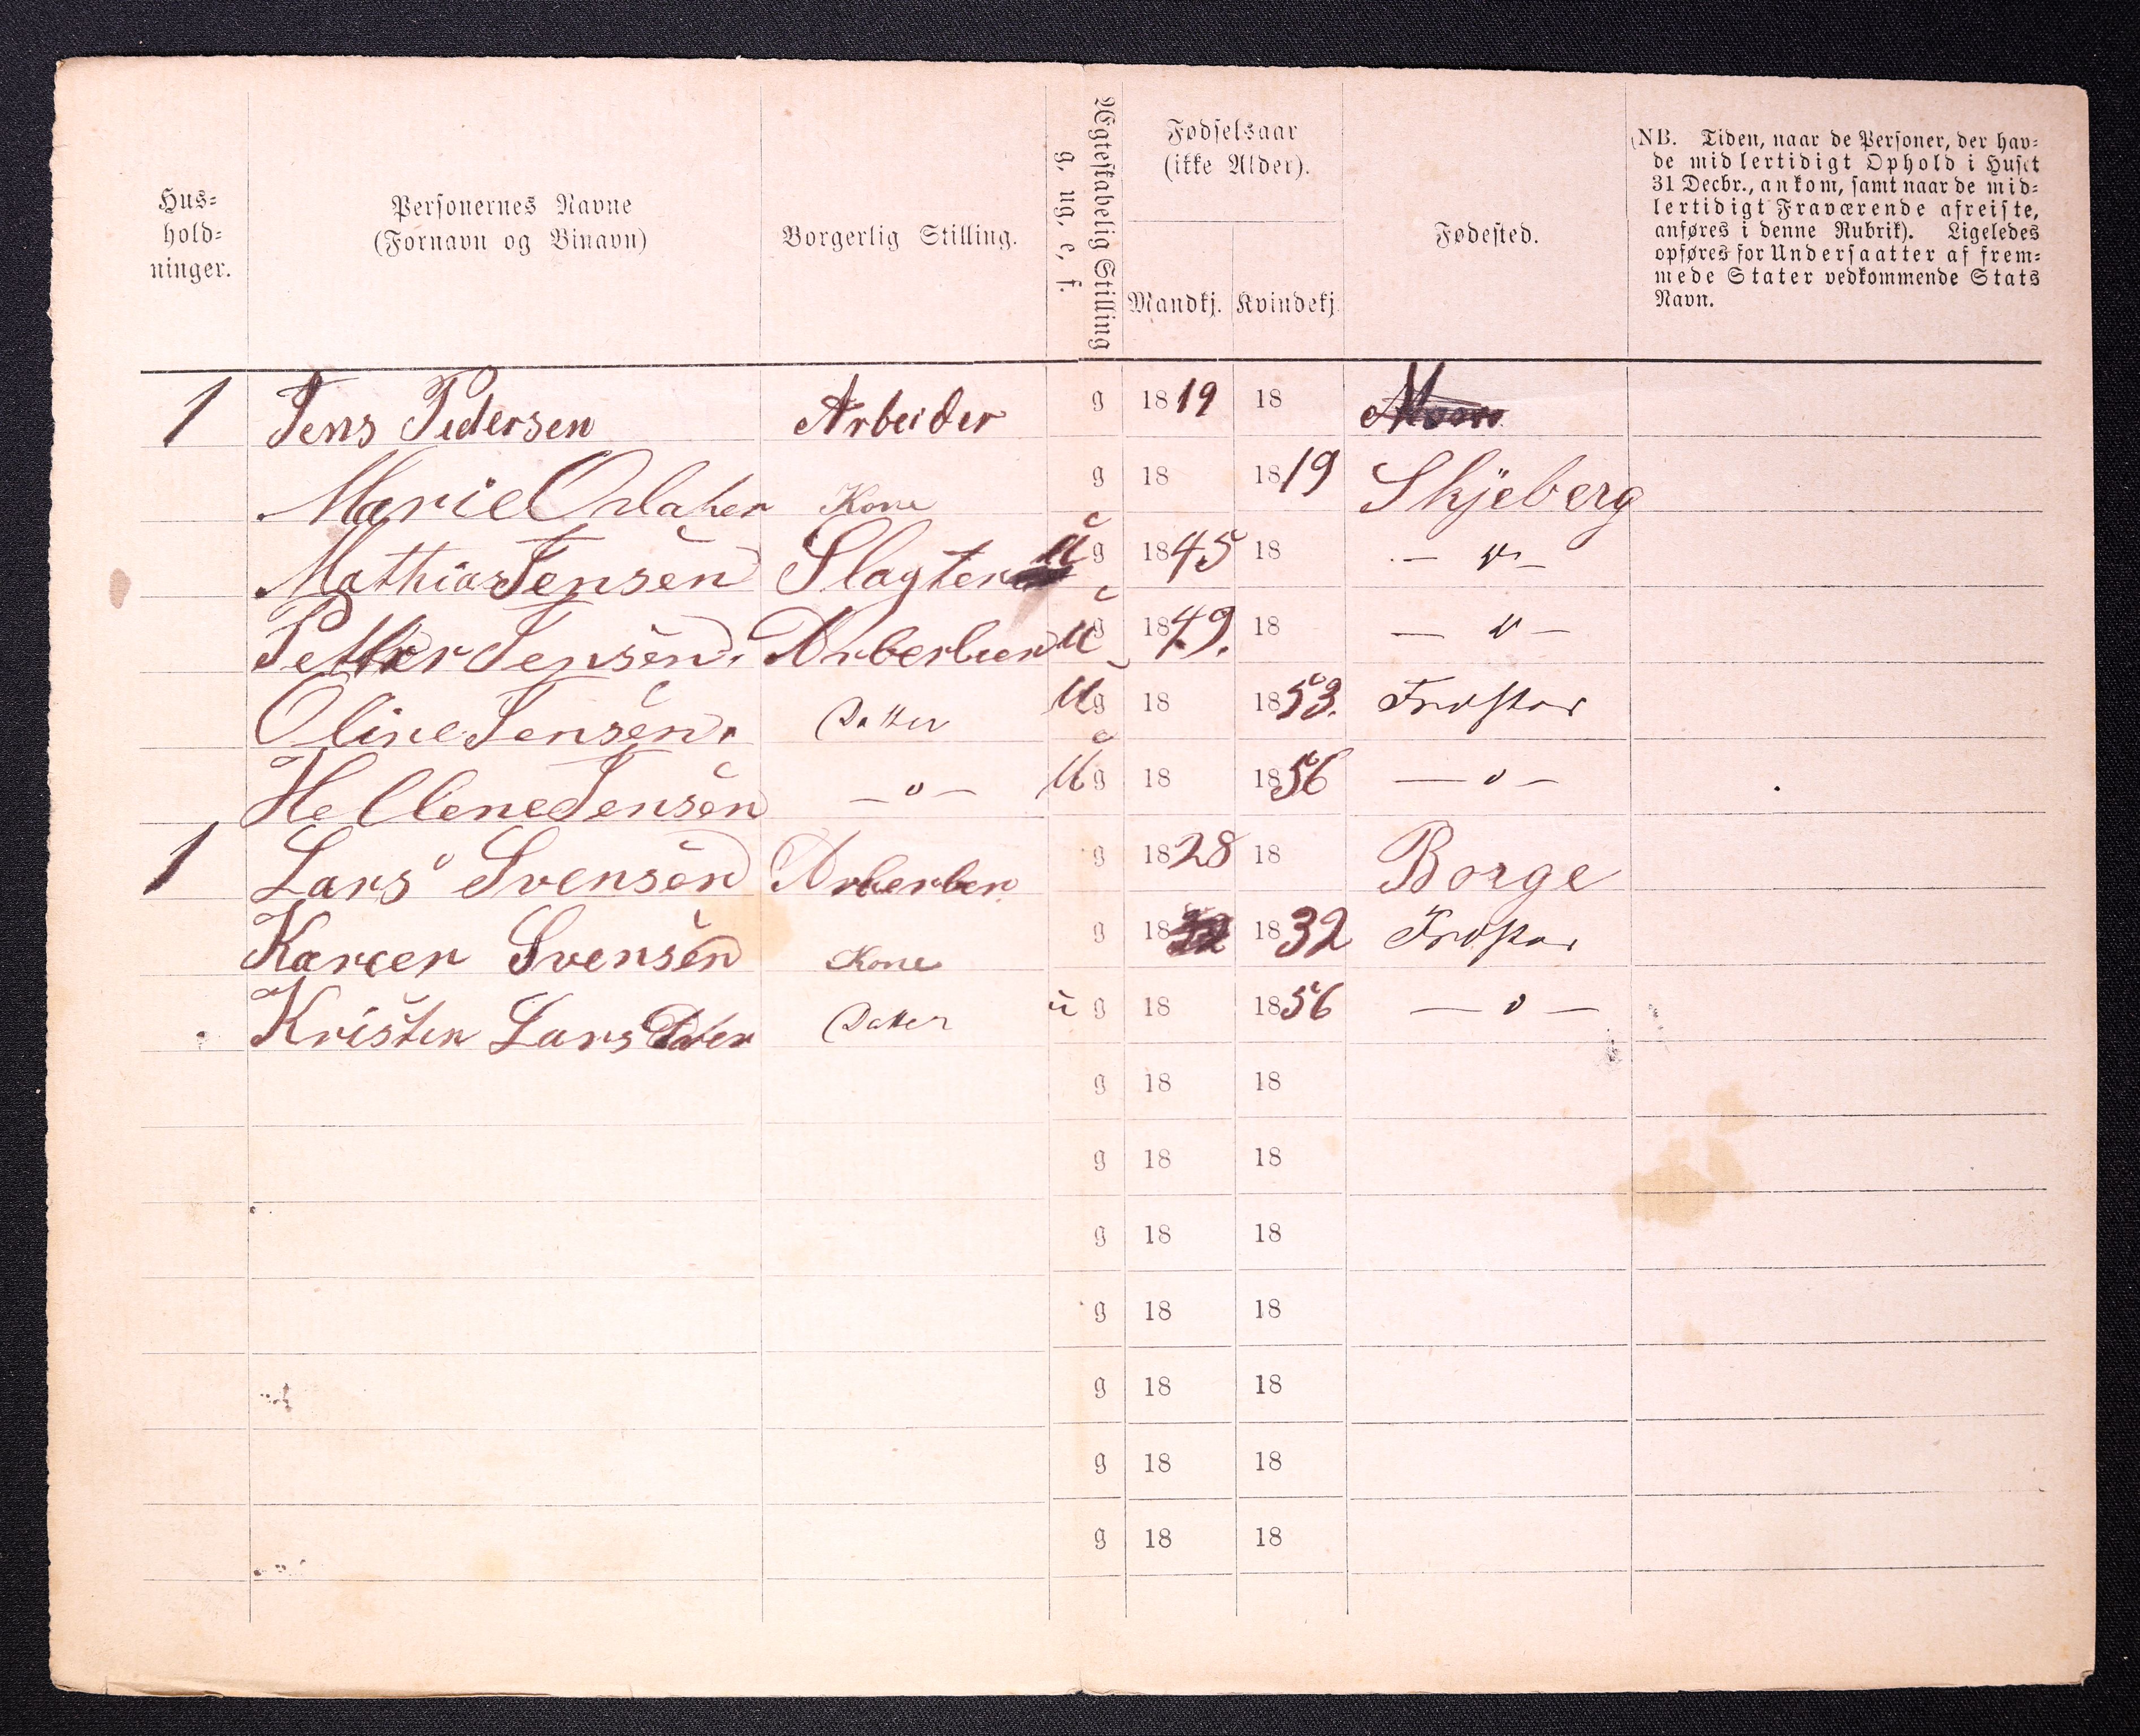 Hus-
hold-
ninger.
Personernes Navne
(Fornavn og Binavn)
Borgerlig Stilling.
Ægteskabelig Stilling
g, ug, e, f.
Fødselsaar
(ikke Alder).
Mandkj. Kvindekj.
Fødested.
(NB. Tiden, naar de Personer, der hav-
de midlertidigt Ophold i Huset
31 Decbr., ankom, samt naar de mid-
lertidigt Fraværende afreiste,
anføres i denne Rubrik). Ligeledes
opføres for Undersaatter af frem-
mede Stater vedkommende Stats
Navn.
1 Jens Pedersen Arbeider g 1819 18
Marie Kone g 18 1819 Skjeberg
Mathias Jensen Slagter ug 1845 18 — " —
Petter Jensen. ug 1849. 18 — " —
Oline Jensen. Datter ug 18 1853.
Hellene Jensen — " — ug 18 1856 — " —
1 Lars Svensen g 1828 18 Borge
Kareen Svensen Kone g 18 1832
Kristin Lars Datter Datter ug 18 1856 — " —
g 18 18
g 18 18
g 18 18
g 18 18
g 18 18
g 18 18
g 18 18